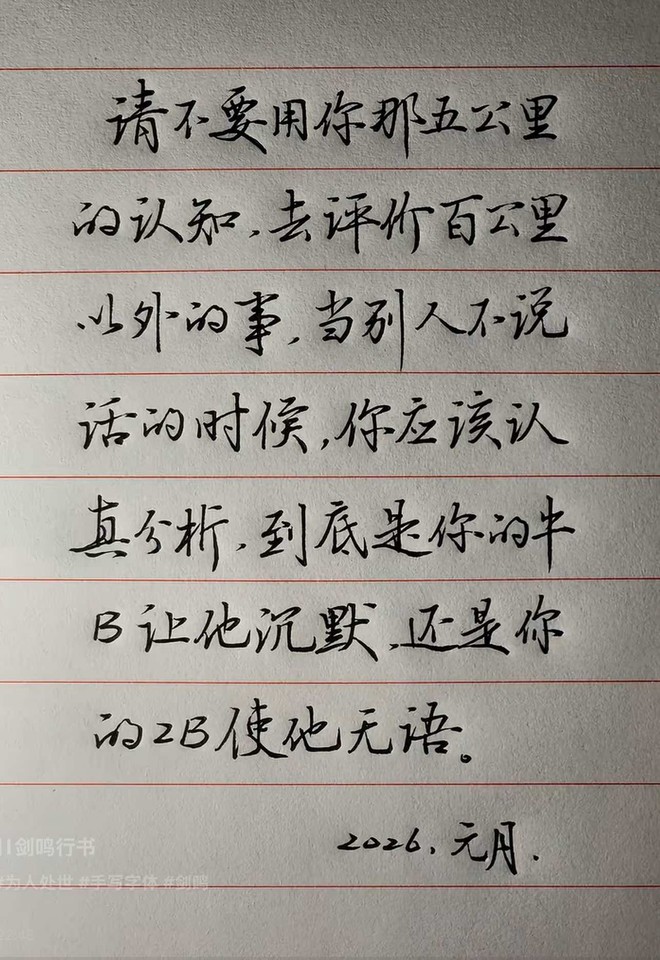 请不要用你那五公里
的认知,去评价百公里
以外的事,当别人不说
话的时候,你应该认
真分析,到底是你的牛
B让他沉默,还是你
的2B使他无语。
2026.元月.
剑鸣行书
#为人处世 #手写字体 #剑鸣